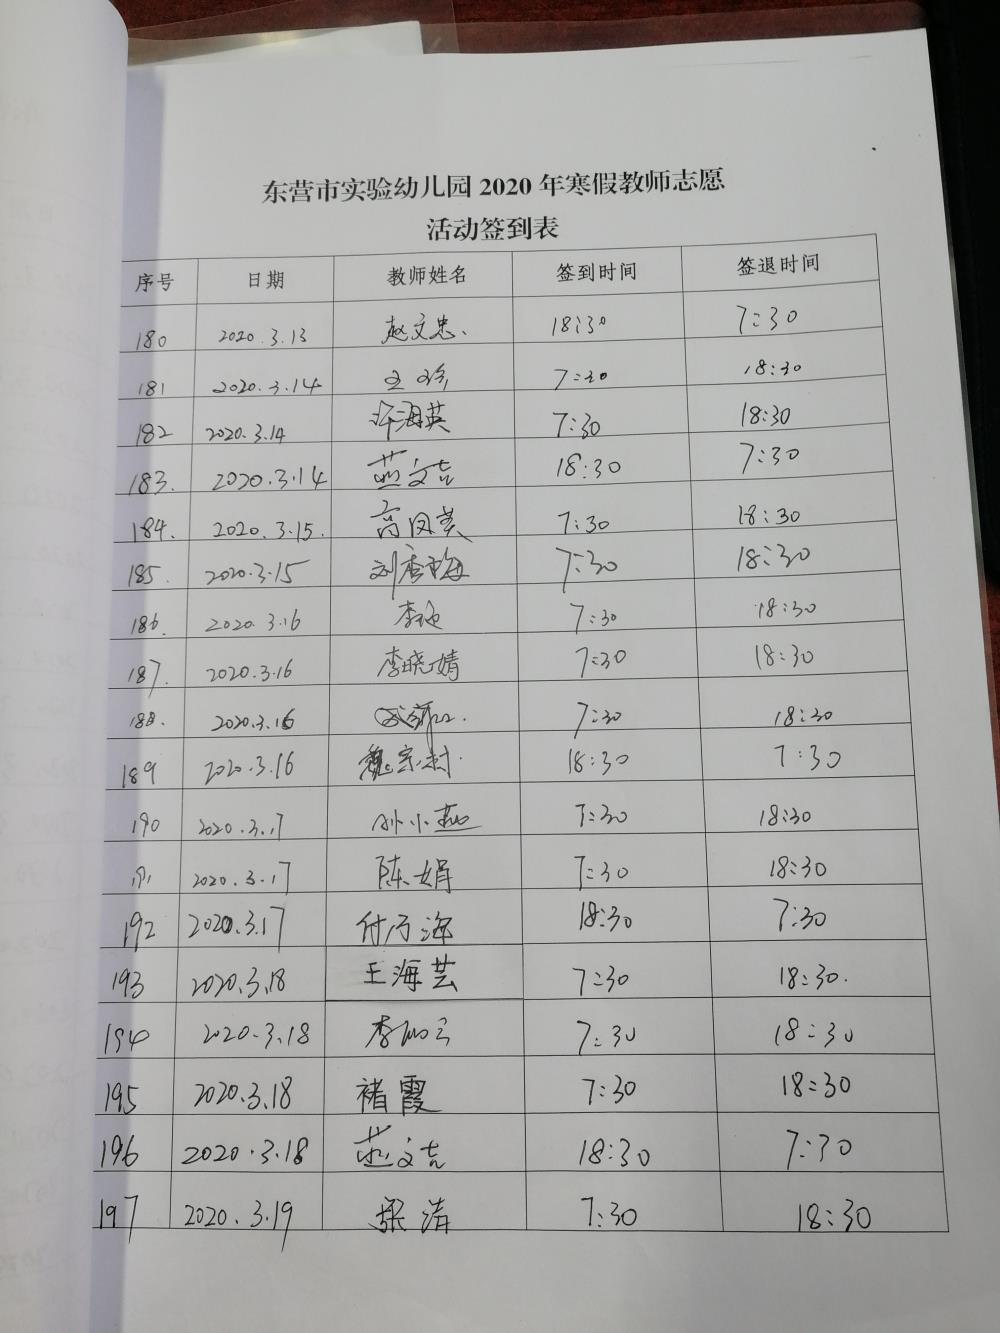 东营市实验幼儿园 2020 年寒假教师志愿
活动签到表
序号 日期 教师姓名 签到时间 签退时间
180 2020.3.13 赵文忠 18:30 7:30
181 2020.3.14 王 7:30 18:30
182 2020.3.14 许海英 7:30 18:30
183. 2020.3.14 燕文吉 18:30 7:30
184. 2020.3.15. 高凤英 7:30 18:30
185. 2020.3.15 刘秀梅 7:30 18:30
186. 2020.3.16 李 7:30 18:30
187. 2020.3.16 李晓婧 7:30 18:30
188. 2020.3.16 7:30 18:30
189 2020.3.16 魏宗村 18:30 7:30
190 2020.3.17 孙小燕 7:30 18:30
191 2020.3.17 陈娟 7:30 18:30
192 2020.3.17 付海 18:30 7:30
193 2020.3.18 王海芸 7:30 18:30.
194 2020.3.18 李 7:30 18:30
195 2020.3.18 褚霞 7:30 18:30
196 2020.3.18 燕文吉 18:30 7:30
197 2020.3.19 梁清 7:30 18:30